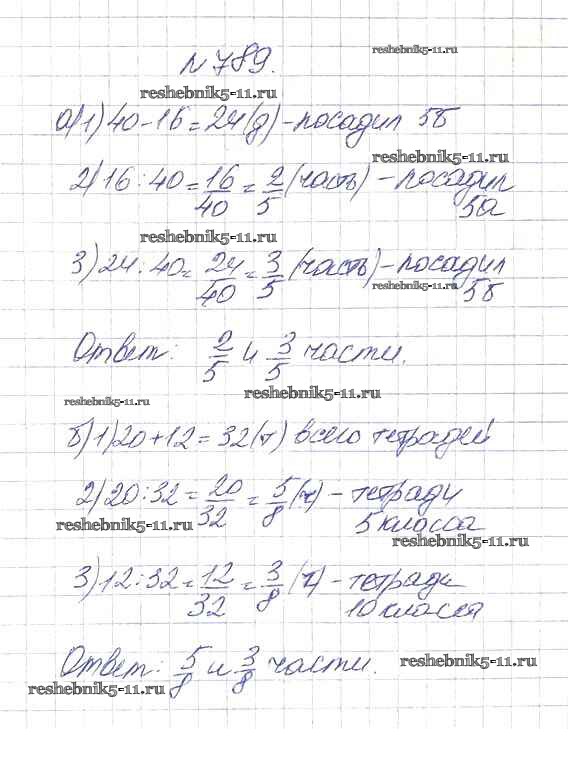 №789.
reshebnik5-11.ru
reshebnik5-11.ru
а) 1) 40-16=24(д) - посадил 5б
reshebnik5-11.ru
2) 16:40=16/40=2/5 (часть) - посадил
5а
reshebnik5-11.ru
3) 24:40=24/40=3/5 (часть) - посадил
reshebnik5-11.ru
5б
Ответ: 2/5 и 3/5 части.
reshebnik5-11.ru
reshebnik5-11.ru
б) 1) 20+12=32(т) всего тетрадей
2) 20:32=20/32=5/8 (ч) - тетради
reshebnik5-11.ru
5 класса
reshebnik5-11.ru
3) 12:32=12/32=3/8 (ч) - тетради
10 класса
Ответ: 5/8 и 3/8 части.
reshebnik5-11.ru
reshebnik5-11.ru